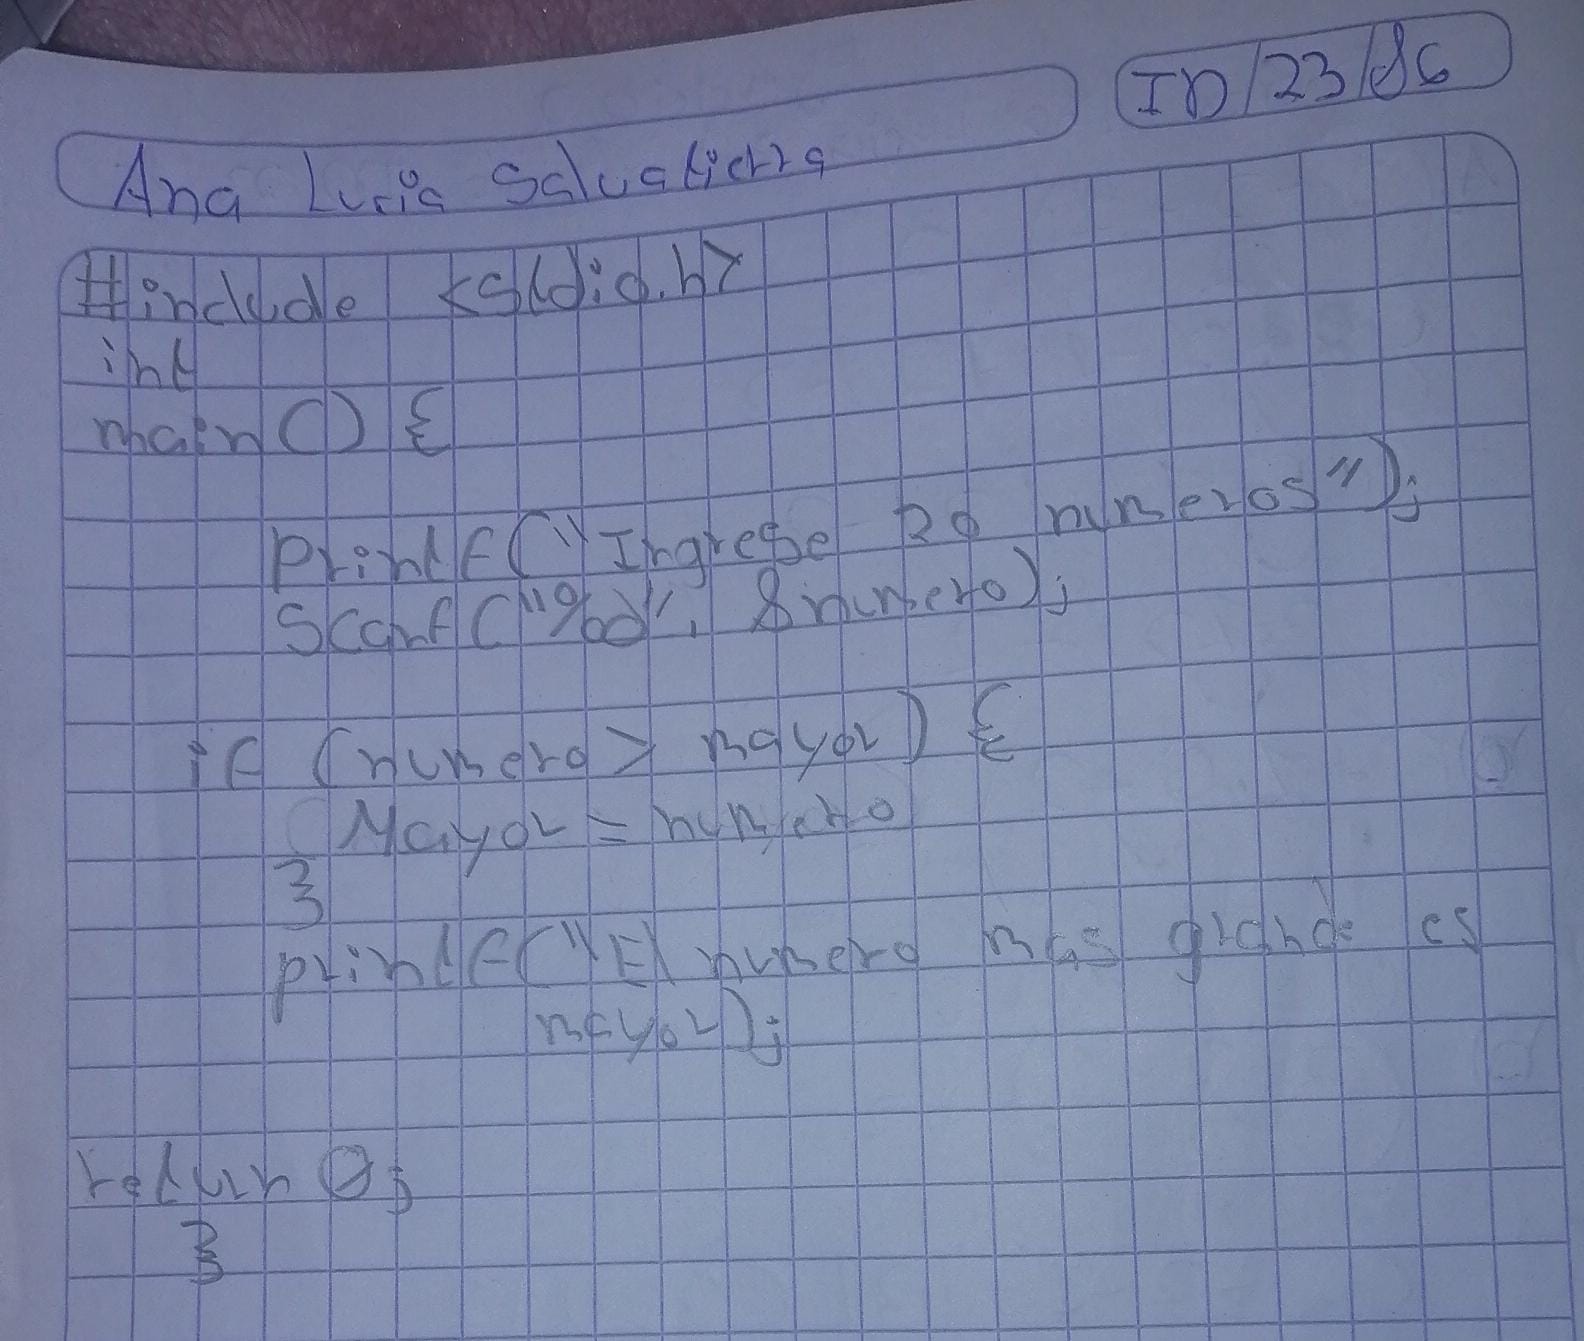 ID/23/86
Ana Lucia Salvatierra
#include <stdio.h>
int
main() {
printf("Ingrese 20 numeros");
Scanf("%d", &numero);
if (numero > mayor) {
Mayor = numero
}
printf("El numero mas grande es
mayor);
return 0;
}